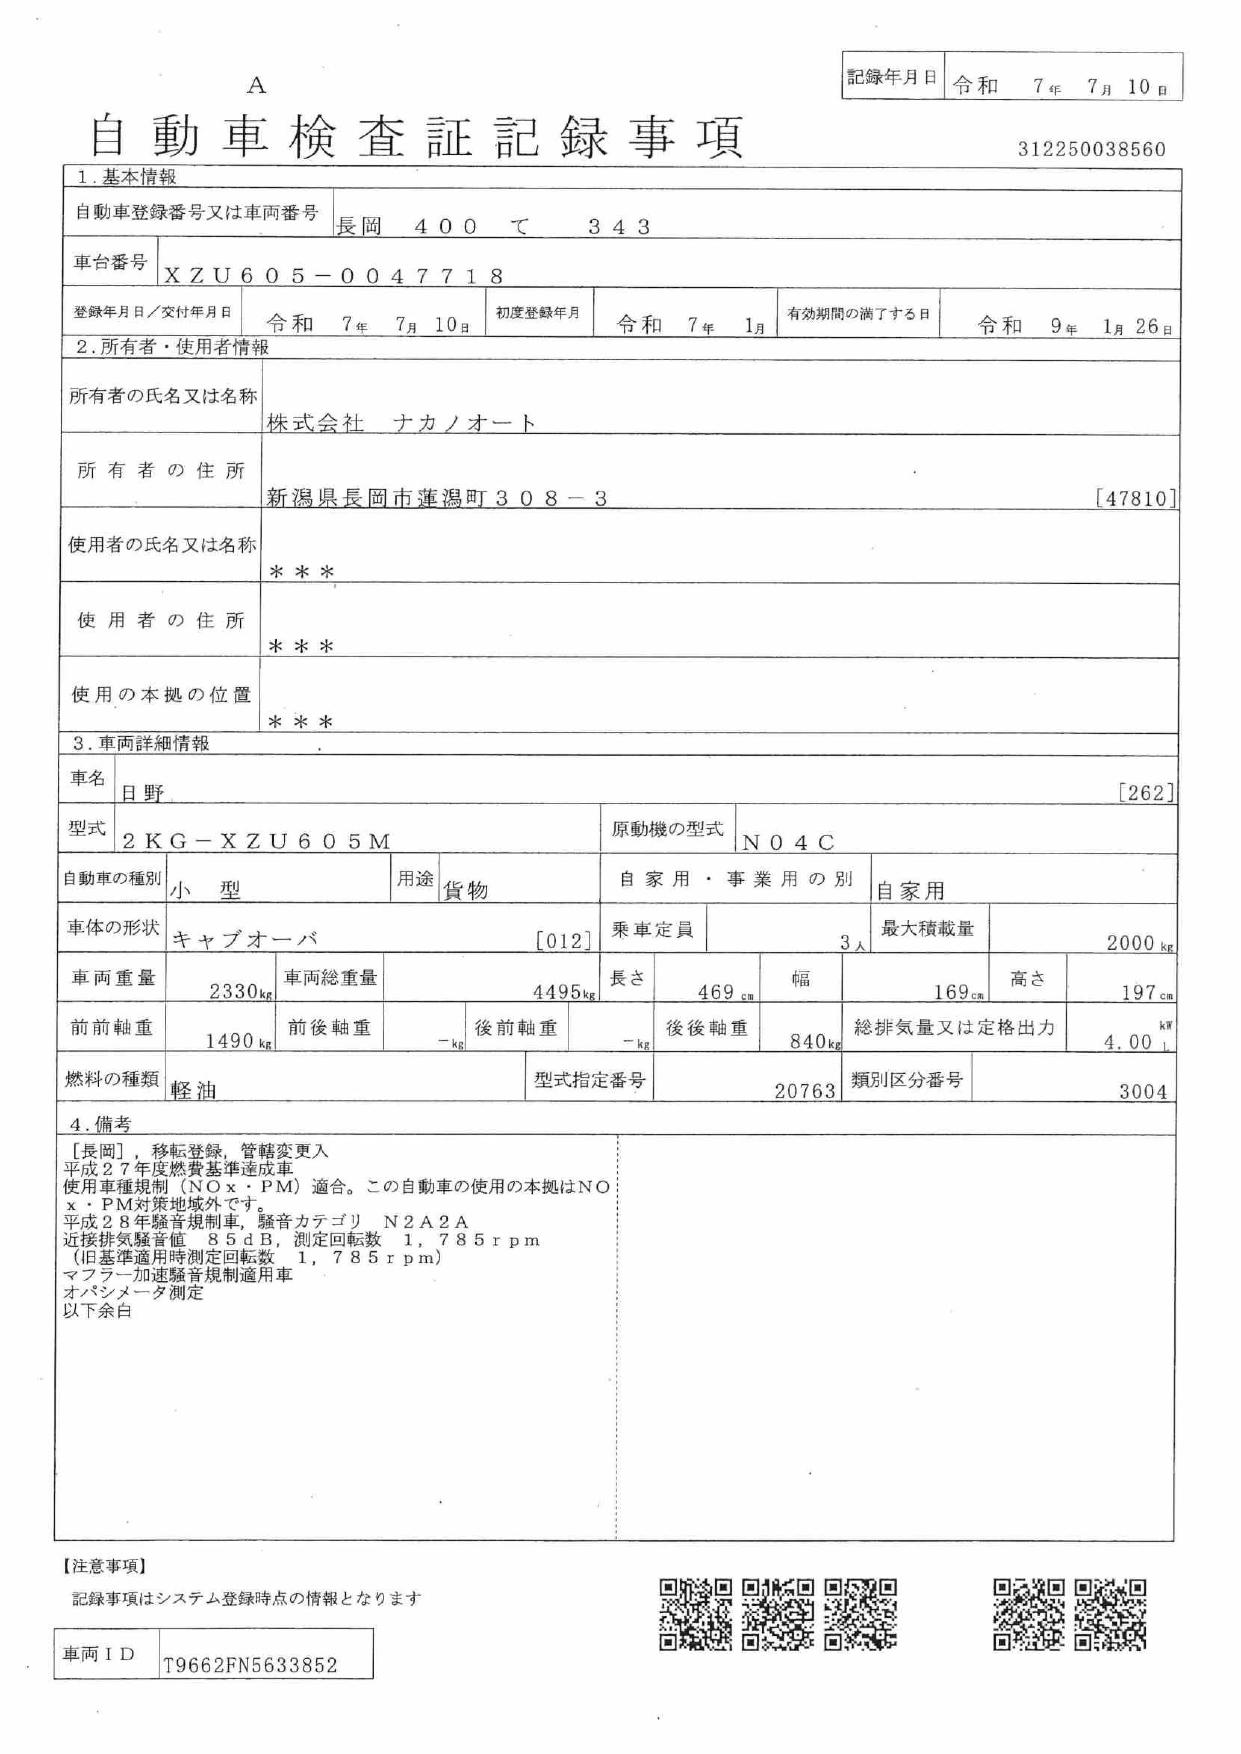 記録年月日 令和 7年 7月 10日
A
自動車検査証記録事項
312250038560
1.基本情報
自動車登録番号又は車両番号 長岡 400 て 343
車台番号 XZU605-0047718
登録年月日/交付年月日 令和 7年 7月 10日 初度登録年月 令和 7年 1月 有効期間の満了する日 令和 9年 1月 26日
2.所有者・使用者情報
所有者の氏名又は名称 株式会社 ナカノオート
所有者の住所 新潟県長岡市蓮潟町308-3 [47810]
使用者の氏名又は名称 ***
使用者の住所 ***
使用の本拠の位置 ***
3.車両詳細情報
車名 日野 [262]
型式 2KG-XZU605M 原動機の型式 N04C
自動車の種別 小型 用途 貨物 自家用・事業用の別 自家用
車体の形状 キャブオーバ [012] 乗車定員 3人 最大積載量 2000kg
車両重量 2330kg 車両総重量 4495kg 長さ 469cm 幅 169cm 高さ 197cm
前前軸重 1490kg 前後軸重 -kg 後前軸重 -kg 後後軸重 840kg 総排気量又は定格出力 4.00 kW L
燃料の種類 軽油 型式指定番号 20763 類別区分番号 3004
4.備考
[長岡],移転登録,管轄変更入
平成27年度燃費基準達成車
使用車種規制(NOx・PM)適合。この自動車の使用の本拠はNO
x・PM対策地域外です。
平成28年騒音規制車,騒音カテゴリ N2A2A
近接排気騒音値 85dB,測定回転数 1,785rpm
(旧基準適用時測定回転数 1,785rpm)
マフラー加速騒音規制適用車
オパシメータ測定
以下余白
【注意事項】
記録事項はシステム登録時点の情報となります
車両ID T9662FN5633852